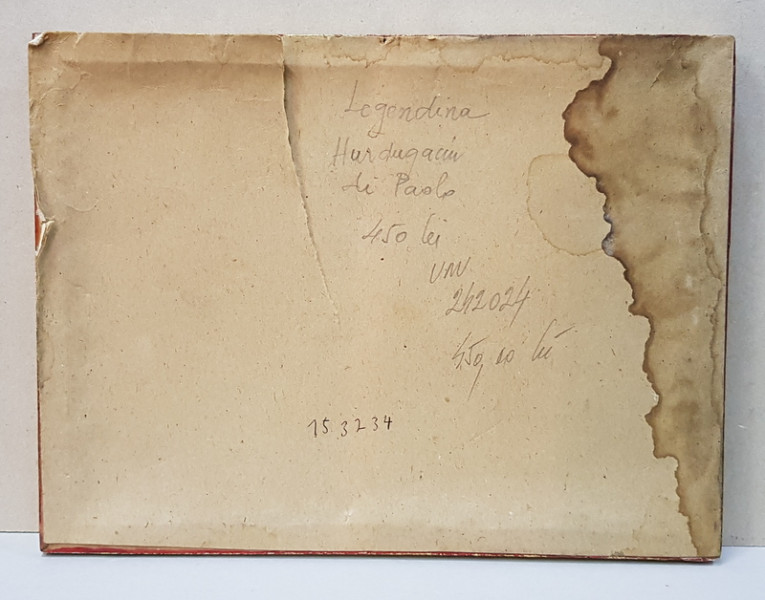 Legendina
Hurdugaciu
di Paolo
450 lei
242024
450,00 lei
153234